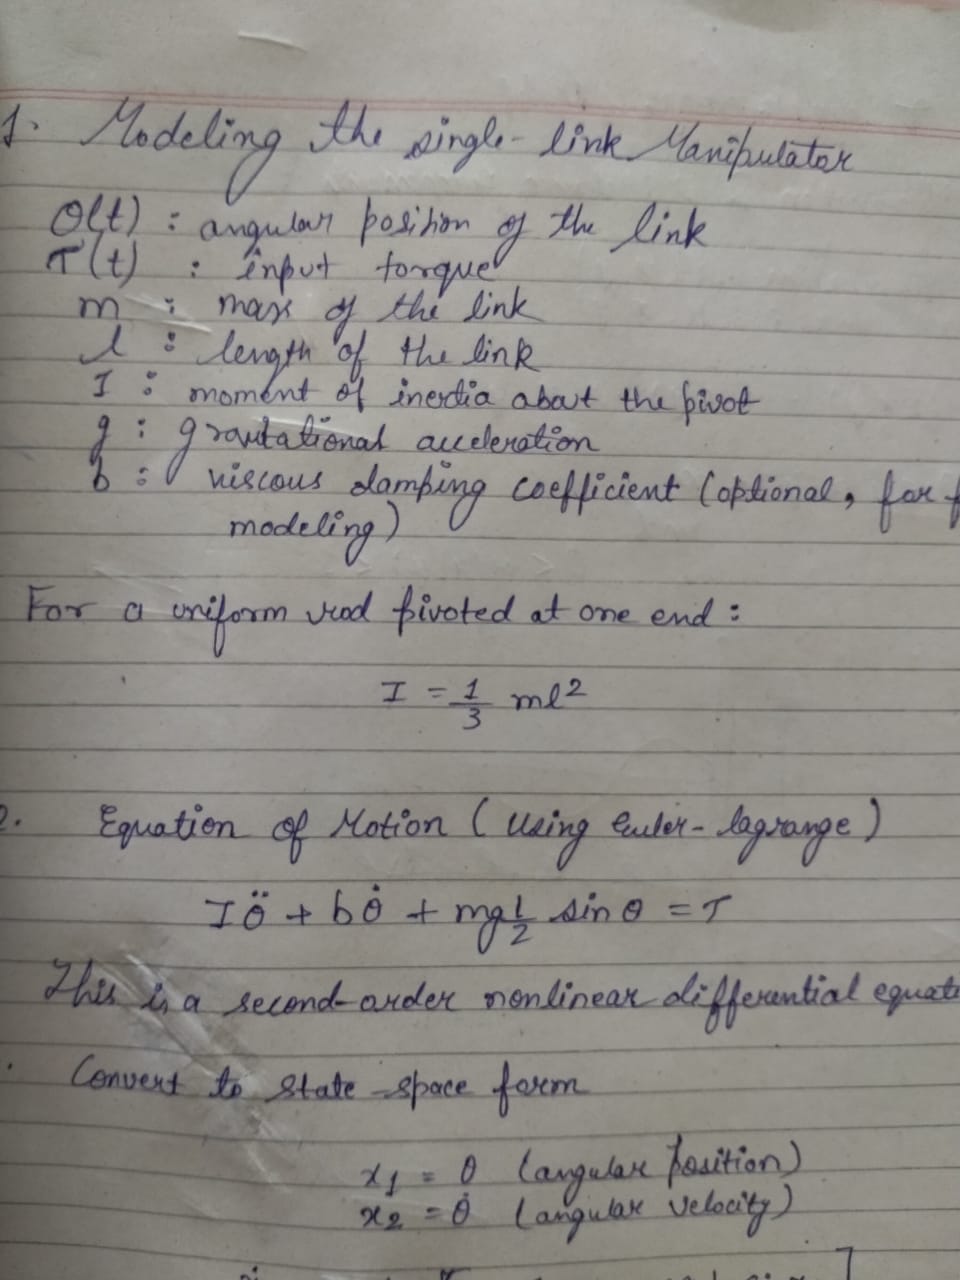 1. Modeling the single-link Manipulator
θ(t) : angular position of the link
τ(t) : input torque
m : mass of the link
l : length of the link
I : moment of inertia about the pivot
g : gravitational acceleration
b : viscous damping coefficient (optional, for
modeling)
For a uniform rod pivoted at one end :
I = 1/3 ml²
2. Equation of Motion (Using Euler-lagrange)
Iθ̈ + bθ̇ + mg l/2 sin θ = τ
This is a second-order nonlinear differential
Convert to state-space form
x₁ = θ (angular position)
x₂ = θ̇ (angular velocity)